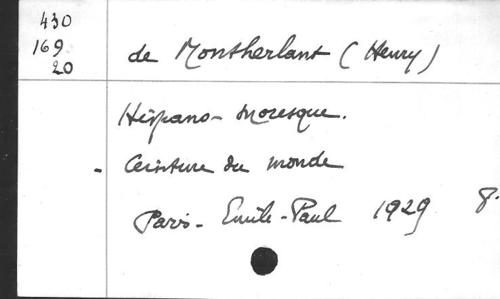 430
169
20
de Montherlant (Henry)
Hispano-Moresque.
- Ceinture du monde
Paris - Emile-Paul 1929 8.